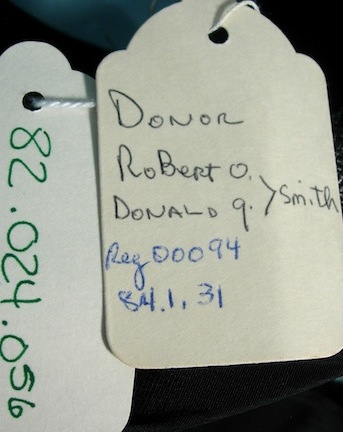 82.024.056
DONOR
ROBERT O.
DONALD q. > Smith
Reg 00094
84.1.31